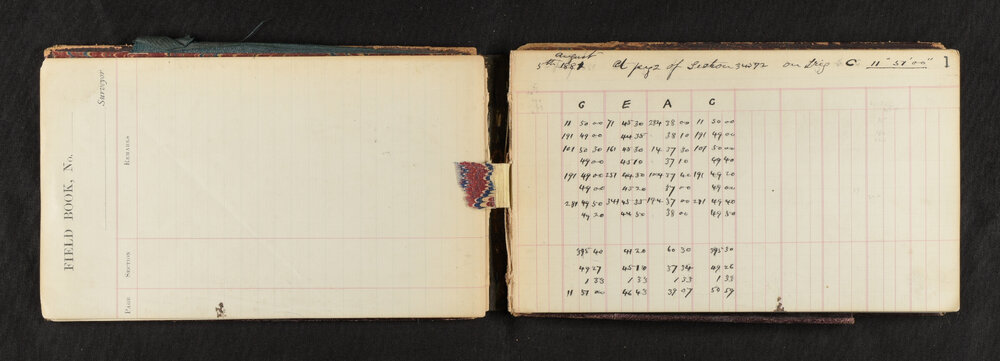 FIELD BOOK, No.
Surveyor.
PAGE SECTION REMARKS
August
5th 1881 At peg 2 of Section on Trig C 11° 51' 00" 1
G E A G
11 50 00 71 45 30 284 38 00 11 50 00
191 49 00 44 35 38 10 191 49 00
101 50 30 161 45 30 14 37 30 101 50 00
49 00 45 10 37 10 49 40
191 49 00 251 44 50 104 37 40 191 49 20
49 00 45 20 37 00 49 00
281 49 50 341 45 35 194 37 00 281 49 40
49 20 44 50 38 00 49 50
395 40 41 20 60 30 395 30
49 27 45 10 37 34 49 26
1 33 1 33 1 33 1 33
11 51 00 46 43 39 07 50 59